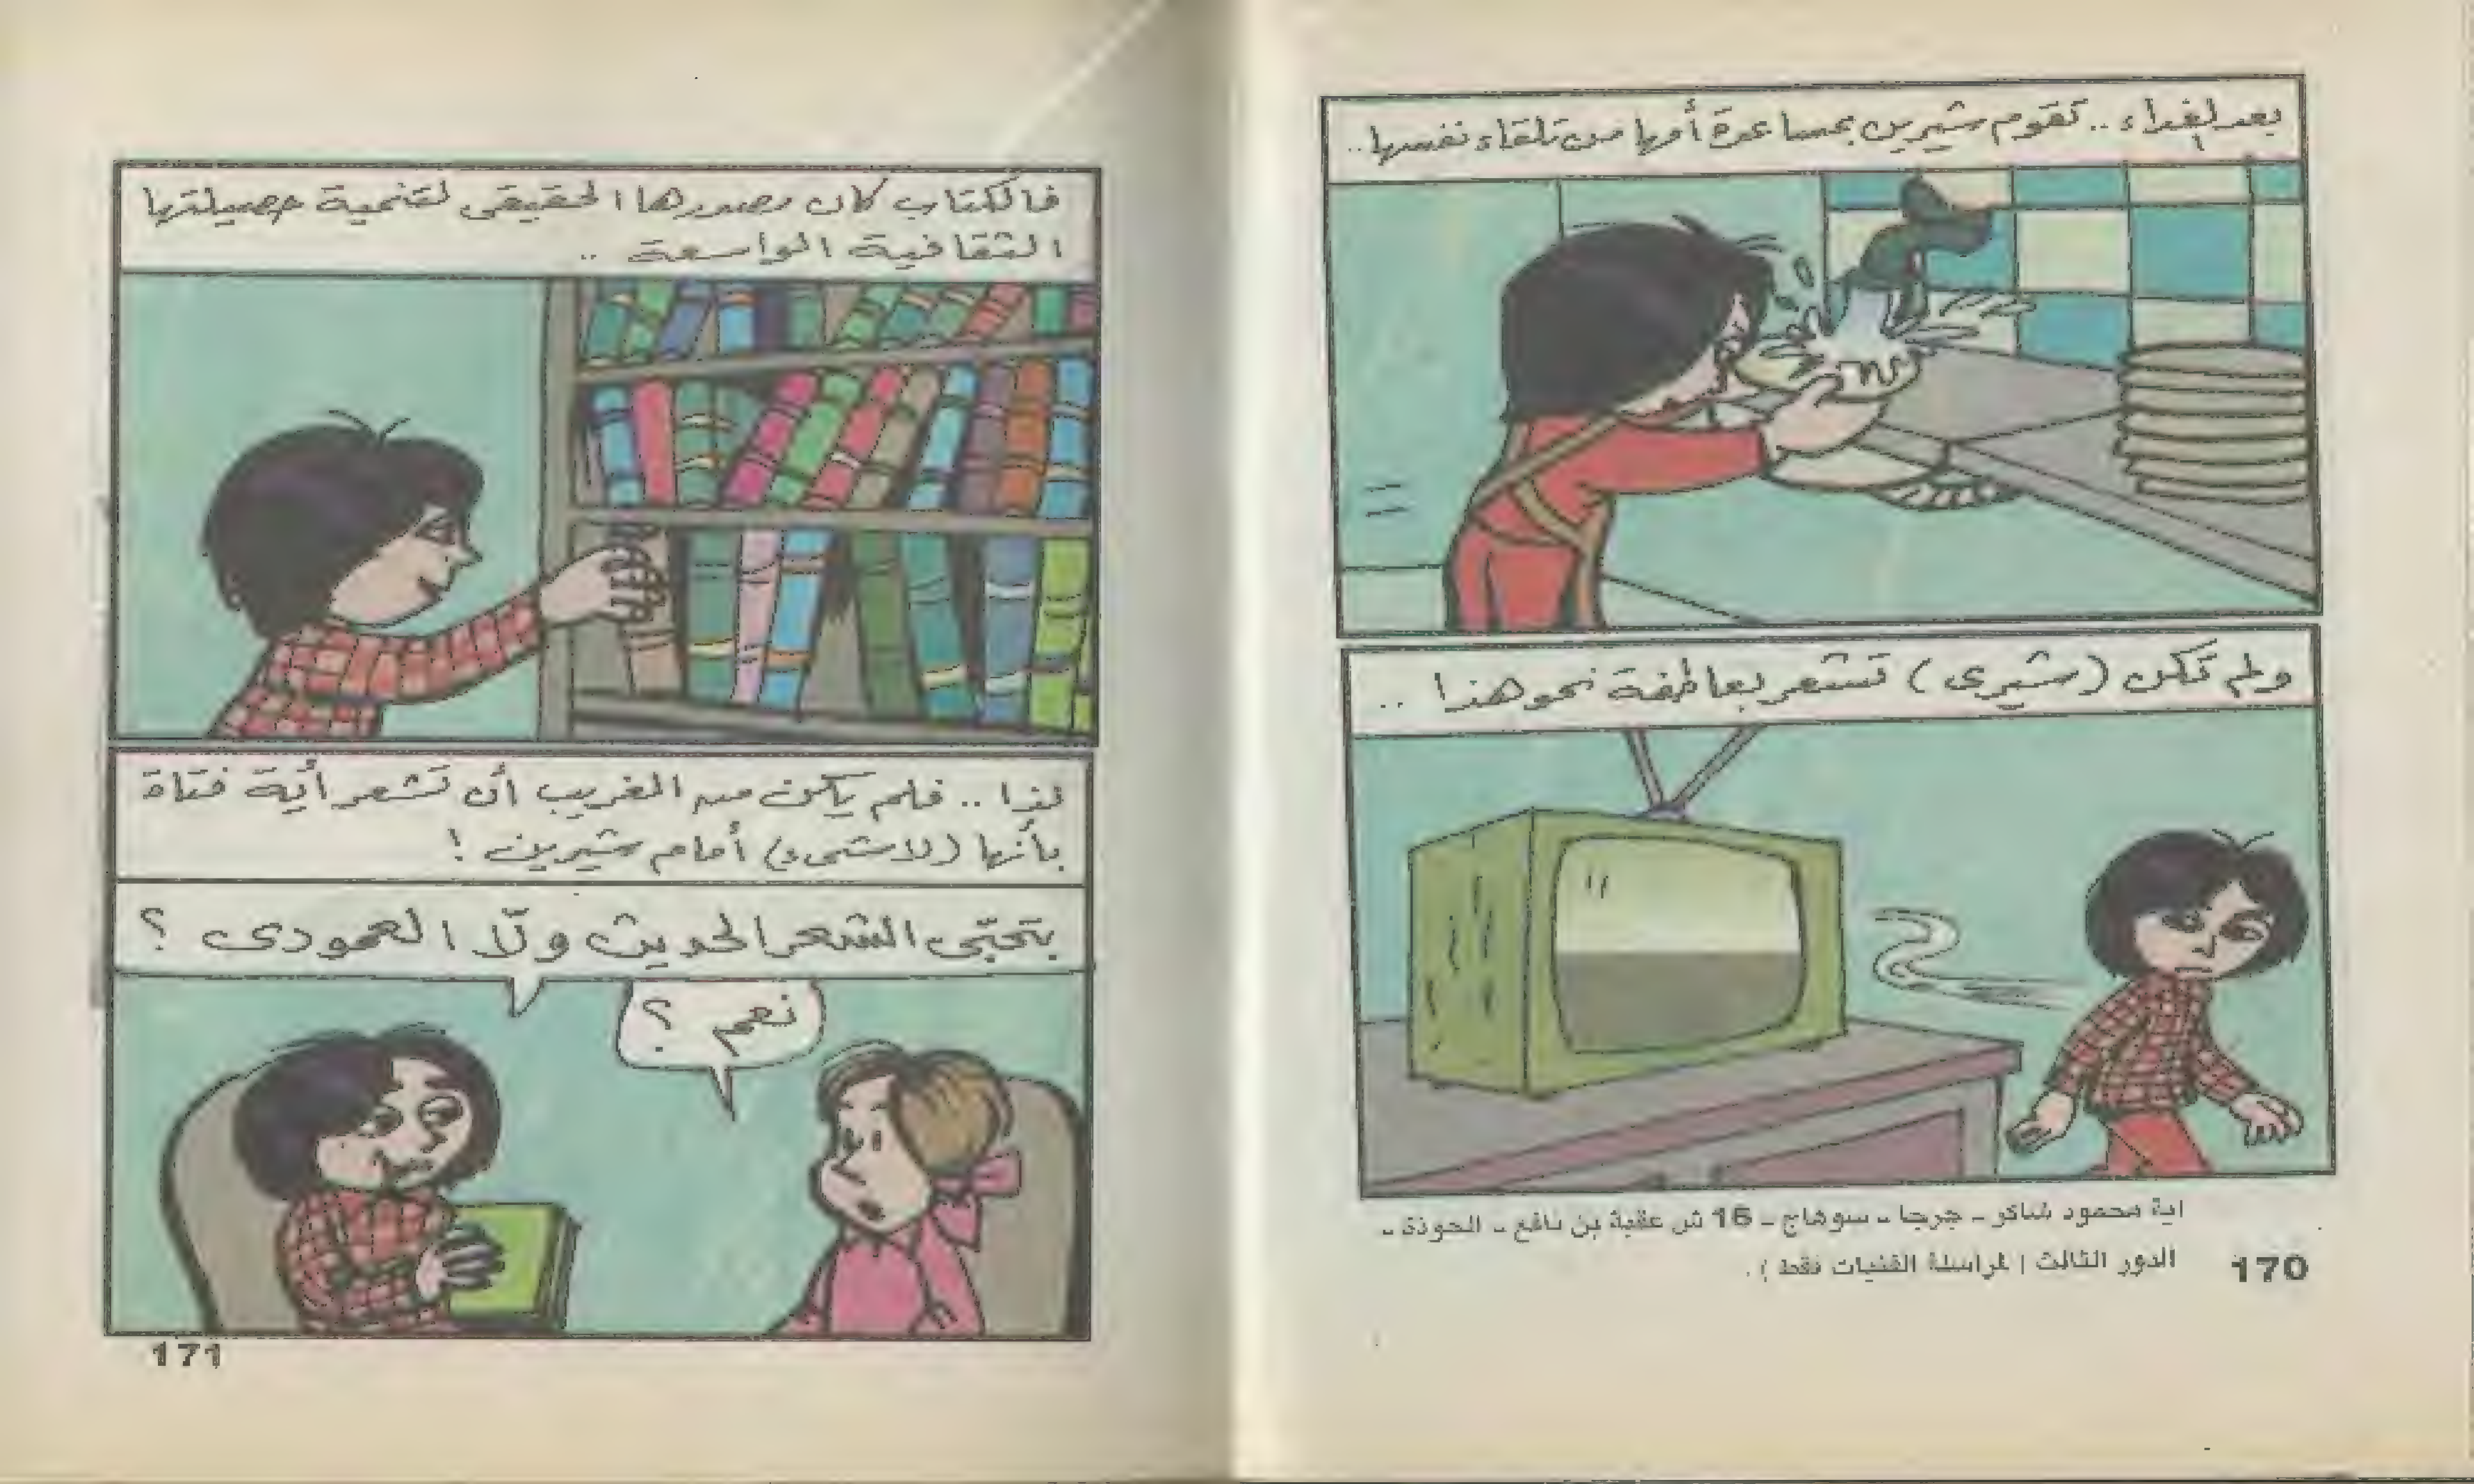 بعد الغداء .. تقوم شيرين بمساعدة أمها من تلقاء نفسها ..
ولم تكن (شيرى) تشعر بعاطفة نحو هذا ..
اية محمود شاكر - جرجا - سوهاج - 16 ش عقبة بن نافع -
الدور الثالث ( لمراسلة الفتيات فقط ) .
170
فالكتاب كان مصدرها الحقيقى لتنمية حصيلتها
الثقافية الواسعة ..
لذا .. فلم يكن من الغريب أن تشعر أية فتاة
بأنها (لاشىء) أمام شيرين !
بتحبّى الشعر الحديث ولّا العمودى ؟
نعم ؟
171